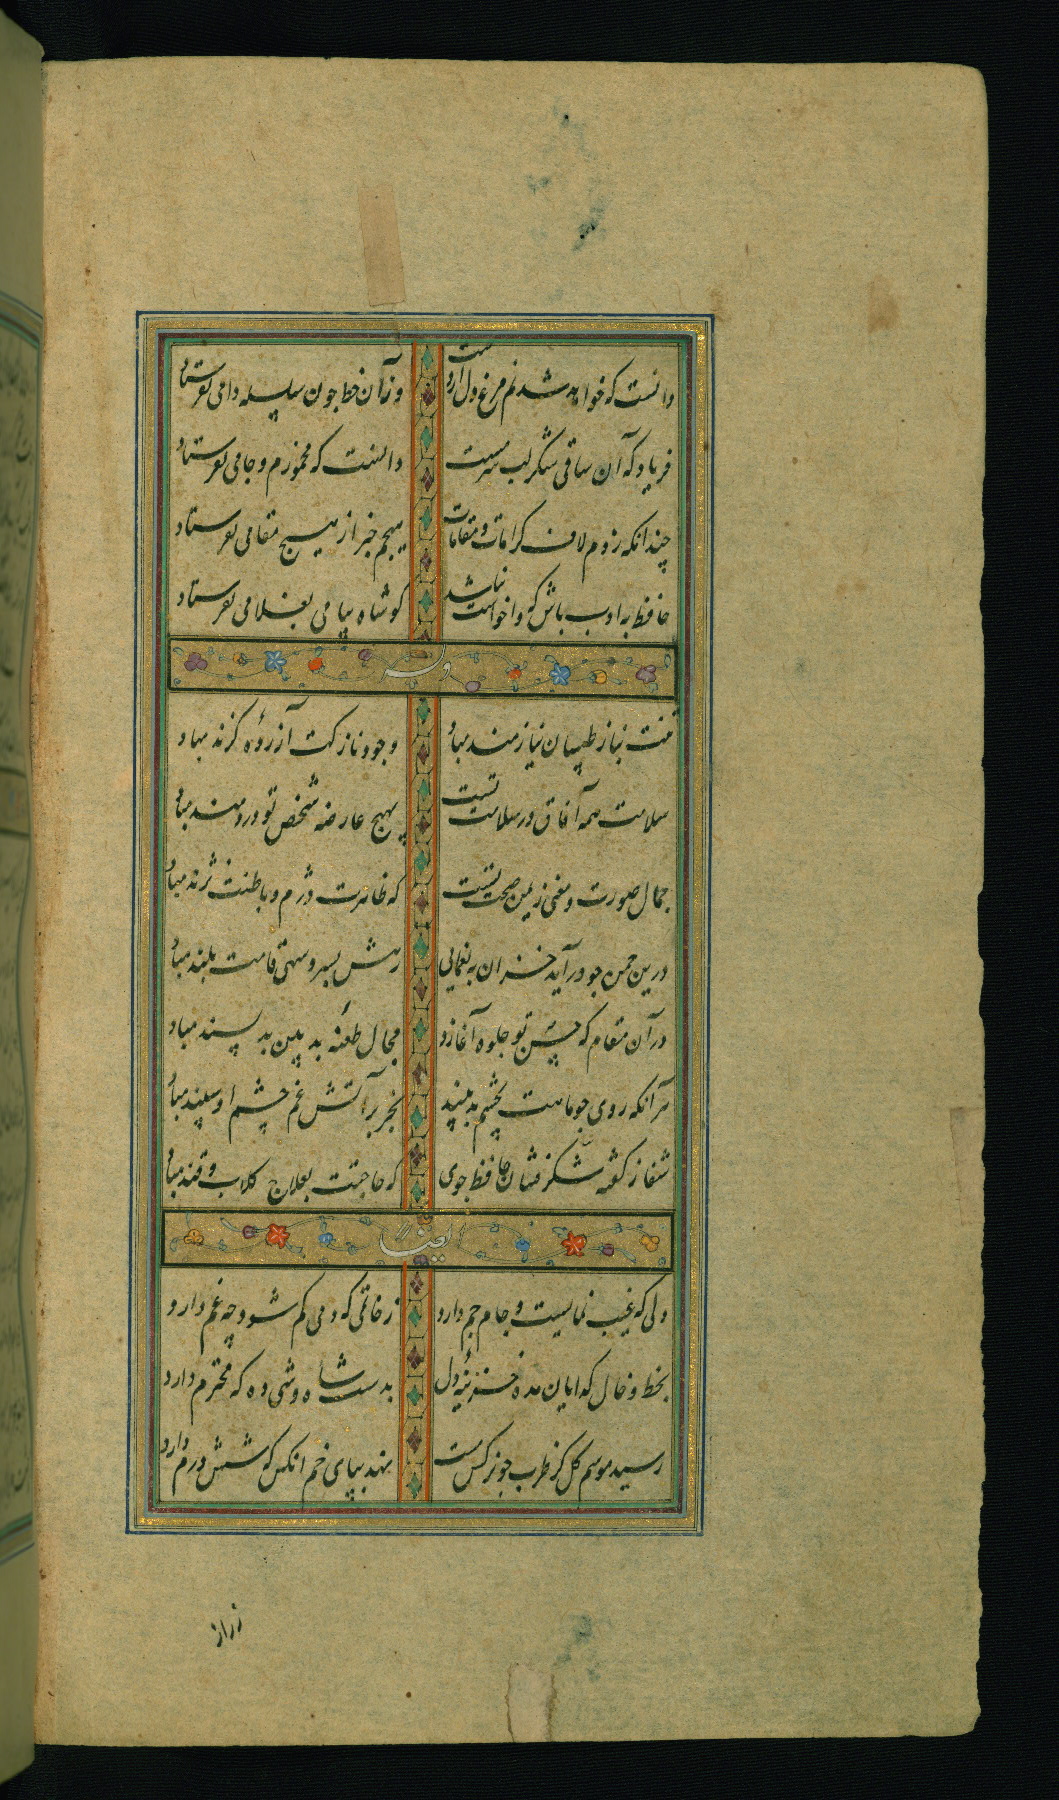 دانست که خواهد شدنم مرغ دل از دست
وزآن خط چون سلسله دامی نفرستاد
فریاد که آن ساقی شکر لب سرمست
دانست که مخمورم و جامی نفرستاد
چندانکه زدم لاف کرامات و مقامات
هیچم خبر از هیچ مقامی نفرستاد
حافظ به ادب باش که واخواست نباشد
کر شاه پیامی بغلامی نفرستاد
وله
تنت بناز طبیبان نیازمند مباد
وجود نازکت آزرده کزند مباد
سلامت همه آفاق در سلامت تست
بهیچ عارضه شخص تو دردمند مباد
جمال صورت و معنی زیمن صحت تست
که ظاهرت دژم و باطنت نژند مباد
درین چمن چو درآید خزان به یغمایی
رهش بسرو سهی قامت بلند مباد
در آن مقام که حسن تو جلوه آغازد
مجال طعنه بد بین بد پسند مباد
هر آنکه روی چو ماهت بچشم بد بیند
بجز بر آتش غم چشم او سپند مباد
شفا ز کفته شکرفشان حافظ جوی
که حاجتت بعلاج کلاب و قند مباد
ایضا
دلی که غیب نمایست و جام جم دارد
ز خاتمی که دمی کم شود چه غم دارد
بخط و خال کدایان مده خزینه دل
بدست شاه وشی ده که محترم دارد
رسید موسم کل کز طرب چو نرکس مست
نهد بپای خم انکس که شش درم دارد
زراز